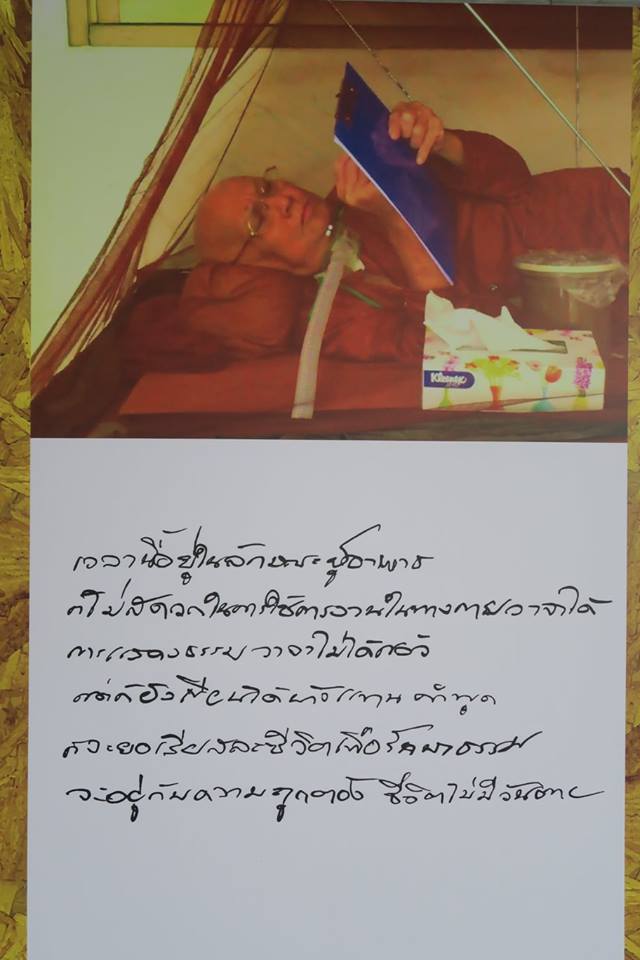 Kleenex
เวลานี้อยู่ในลักษณะผู้อาพาธ
ก็ไม่สะดวกในการใช้การงานในทางกายวาจาได้
การแสดงธรรมวาจาไม่ได้แล้ว
แต่ก็ยังเขียนได้บ้างแทนคำพูด
ก็จะยอมเสียสละชีวิตเพื่อรักษาธรรม
จะอยู่กับความถูกต้อง ชีวิตไม่มีวันตาย